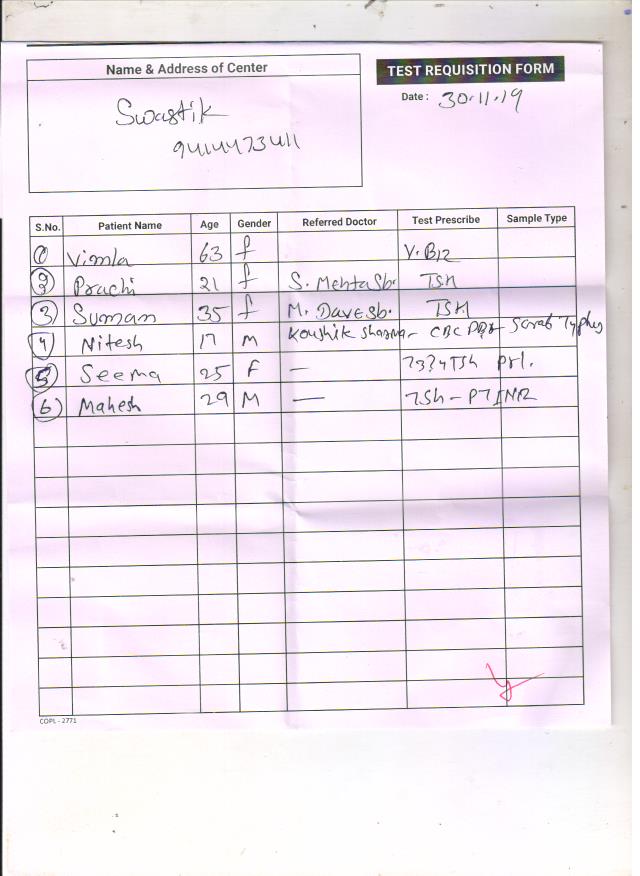 Name & Address of Center
TEST REQUISITION FORM
Date : 30.11.19
Swastik
9414473411
S.No. Patient Name Age Gender Referred Doctor Test Prescribe Sample Type
1 Vimla 63 f V. B12
2 Prachi 21 f S. Mehta Sb. TSH
3 Suman 35 f M. Dave sb. TSH
4 Nitesh 17 M Koushik Sharma - CBC Scrab Typhus
5 Seema 25 F — T3T4TSh Prl.
6 Mahesh 29 M — TSh - PTINR
COPL - 2771